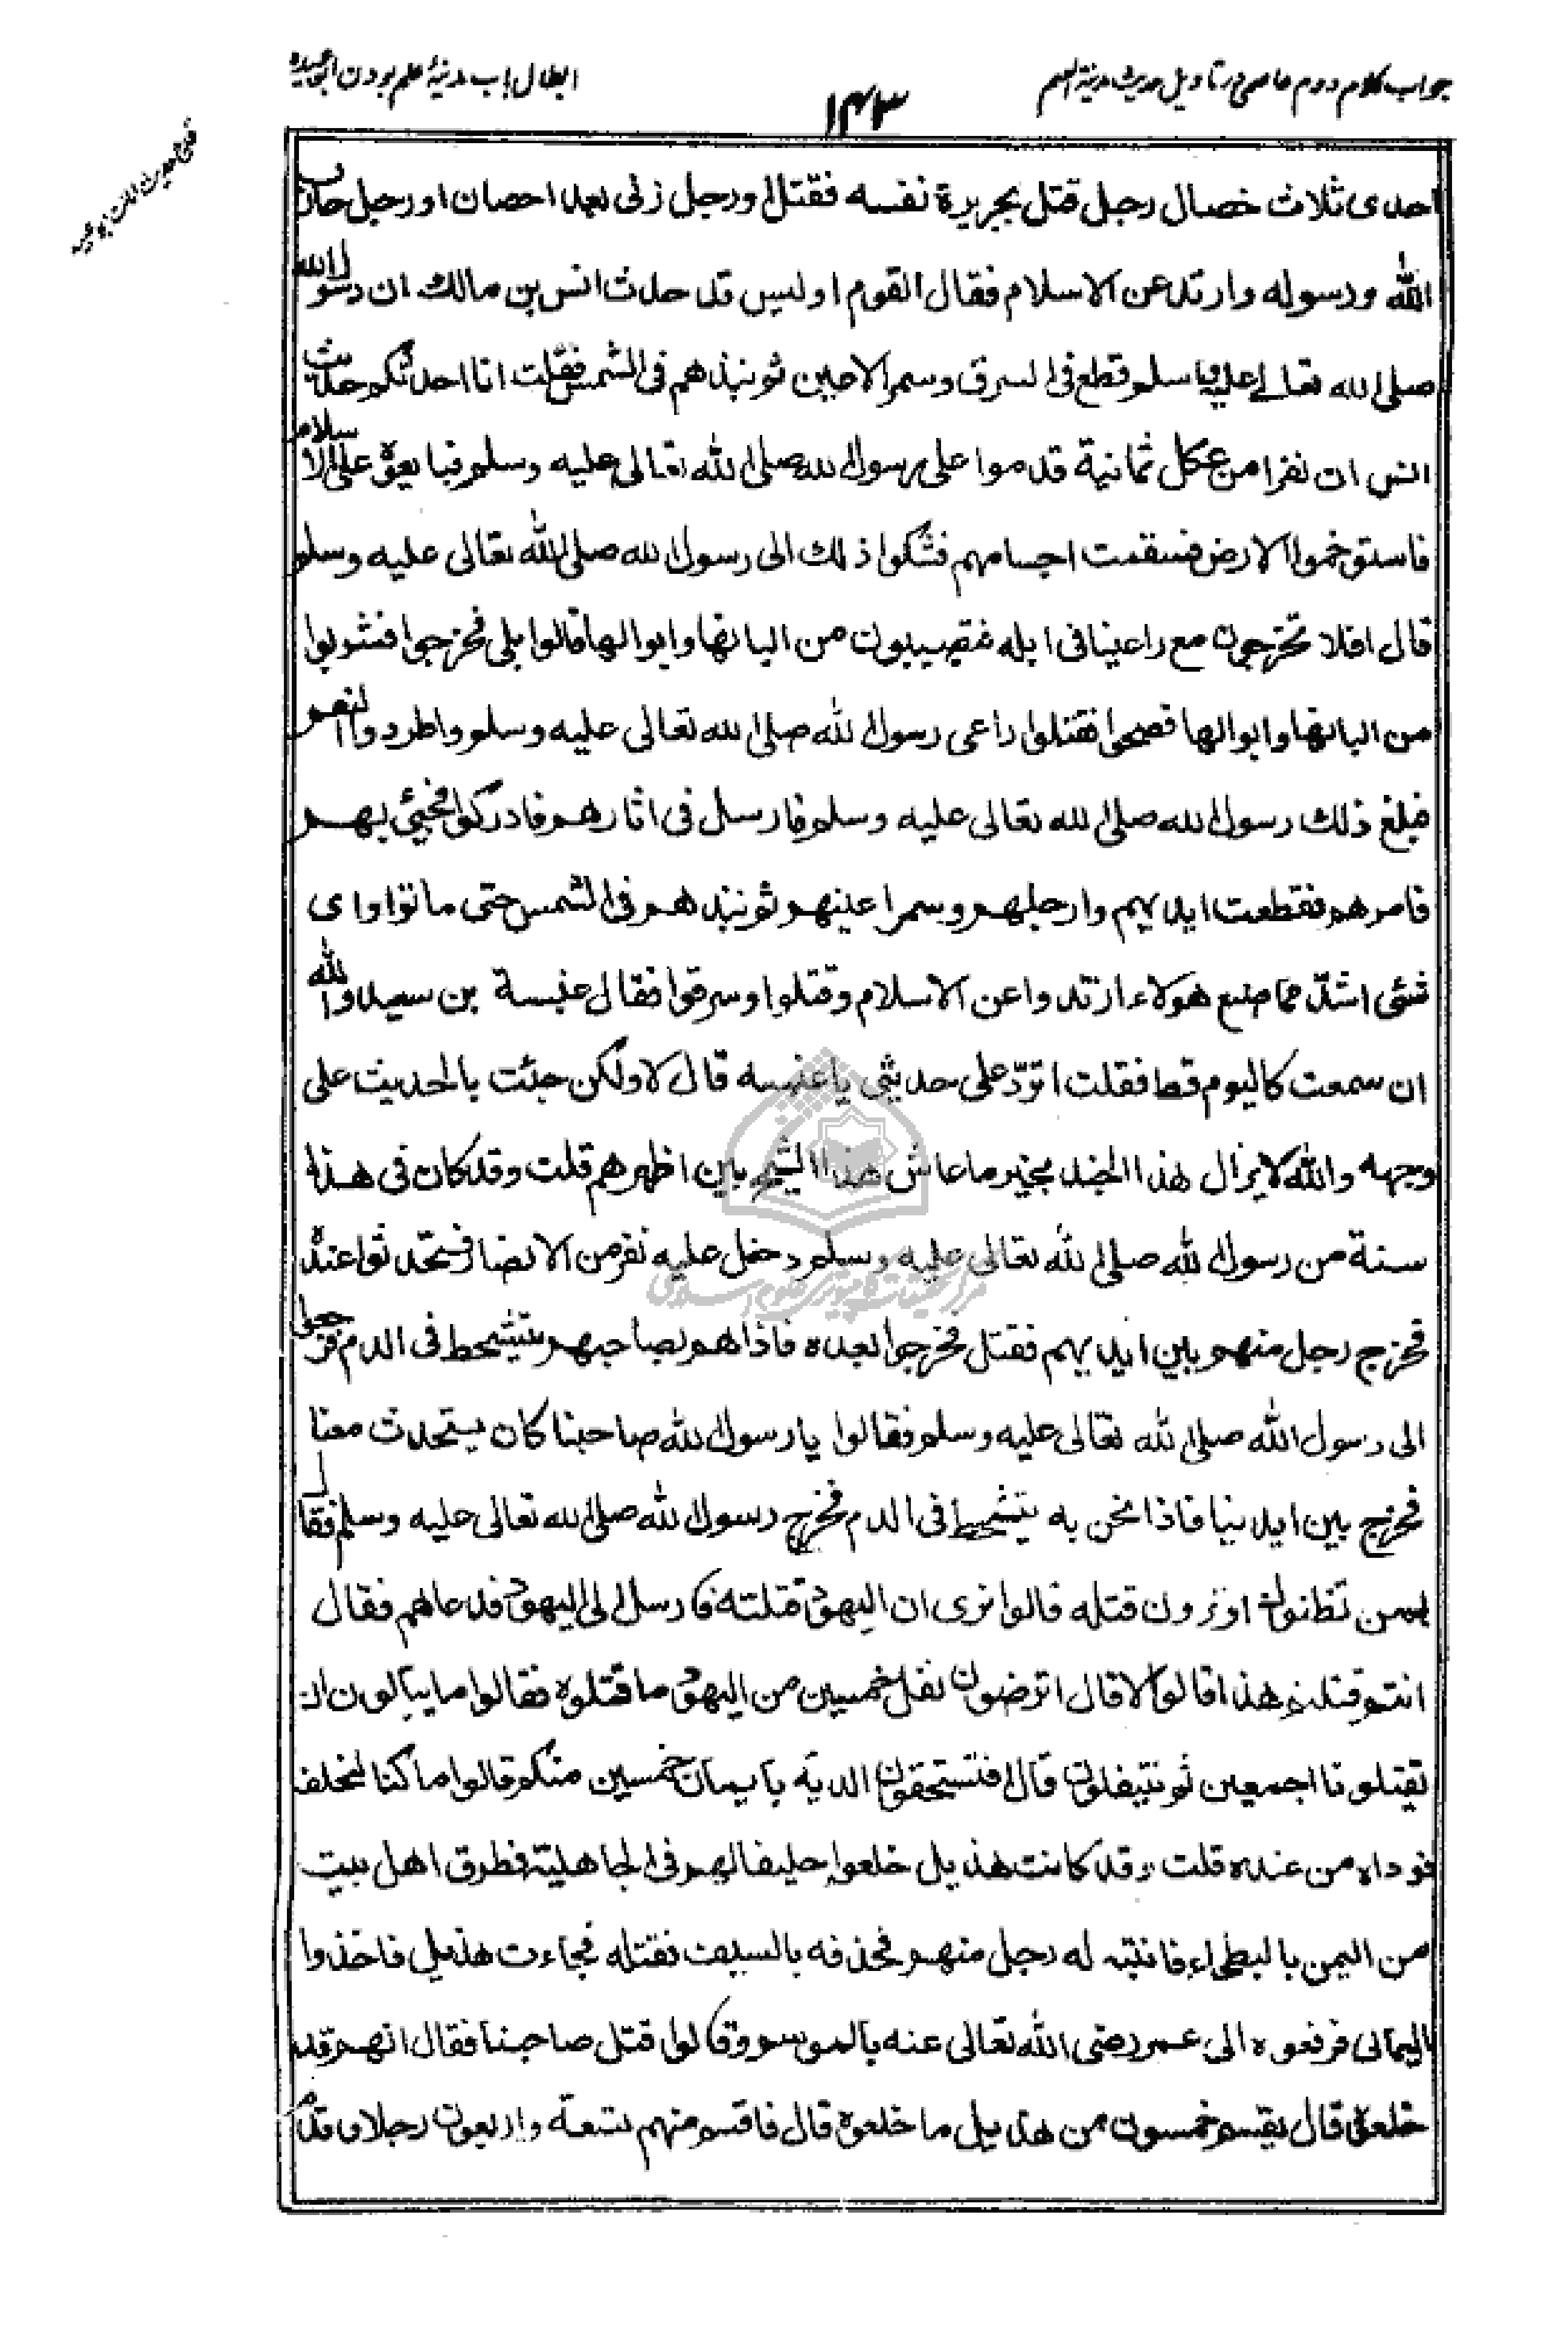 جواب کلام دوم عاصمی در تاویل حدیث مدینة العلم
۱۴۳
ابطال باب مدینۂ علم بودن ابوعبیده
احدى ثلاث خصال رجل قتل بجريرة نفسه فقتل اورجل زنى بعد احصان اورجل حارب
الله ورسوله وارتد عن الاسلام فقال القوم اوليس قد حدث انس بن مالك ان رسول الله
صلى الله تعالى عليه وسلم قطع فى السرق وسمر الاعين ثم نبذهم فى الشمس فقلت انا احدثكم حديث
انس ان نفرا من عكل ثمانية قدموا على رسول الله صلى الله تعالى عليه وسلم فبايعوه على الاسلام
فاستوخموا الارض فسقمت اجسامهم فشكوا ذلك الى رسول الله صلى الله تعالى عليه وسلم
قال افلا تخرجون مع راعينا فى ابله فتصيبون من البانها وابوالها قالوا بلى فخرجوا فشربوا
من البانها وابوالها فصحوا فقتلوا راعى رسول الله صلى الله تعالى عليه وسلم واطردوا النعم
فبلغ ذلك رسول الله صلى الله تعالى عليه وسلم فارسل فى اثارهم فادركوا فجيئ بهم
فامرهم فقطعت ايديهم وارجلهم وسمر اعينهم ثم نبذهم فى الشمس حتى ماتوا واى
شئى اشدّ مما صنع هولاء ارتدوا عن الاسلام وقتلوا وسرقوا فقال عنبسة بن سعيد والله
ان سمعت كاليوم قط فقلت اتردّ على حديثى يا عنبسه قال لا ولكن جئت بالحديث على
وجهه والله لا يزال هذا الجند بخير ما عاش هذا الشيخ بين اظهرهم قلت وقد كان فى هذا
سنة من رسول الله صلى الله تعالى عليه وسلم دخل عليه نفر من الانصار فتحدثوا عنده
فخرج رجل منهم بين ايديهم فقتل فخرجوا بعده فاذا هم بصاحبهم يتشحط فى الدم فرجعوا
الى رسول الله صلى الله تعالى عليه وسلم فقالوا يا رسول الله صاحبنا كان يتحدث معنا
فخرج بين ايدينا فاذا نحن به يتشحط فى الدم فخرج رسول الله صلى الله تعالى عليه وسلم فقال
بمن تظنون او ترون قتله قالوا نرى ان اليهود قتلته فارسل الى اليهود فدعاهم فقال
انتم قتلتم هذا قالوا لا قال اترضون نفل خمسين من اليهود ما قتلوه فقالوا ما يبالون ان
يقتلونا اجمعين ثم ينتفلون قال افتستحقون الدية بايمان خمسين منكم قالوا ما كنا لنحلف
فوداه من عنده قلت وقد كانت هذيل خلعوا حليفا لهم فى الجاهلية فطرق اهل بيت
من اليمن بالبطحاء فانتبه له رجل منهم فحذفه بالسيف فقتله فجاءت هذيل فاخذوا
اليمانى فرفعوه الى عمر رضى الله تعالى عنه بالموسم وقالوا قتل صاحبنا فقال انهم قد
خلعوه قال يقسم خمسون من هذيل ما خلعوه قال فاقسم منهم تسعة واربعون رجلا وقدم